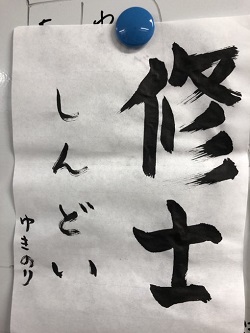 修士
しんどい
ゆきのり